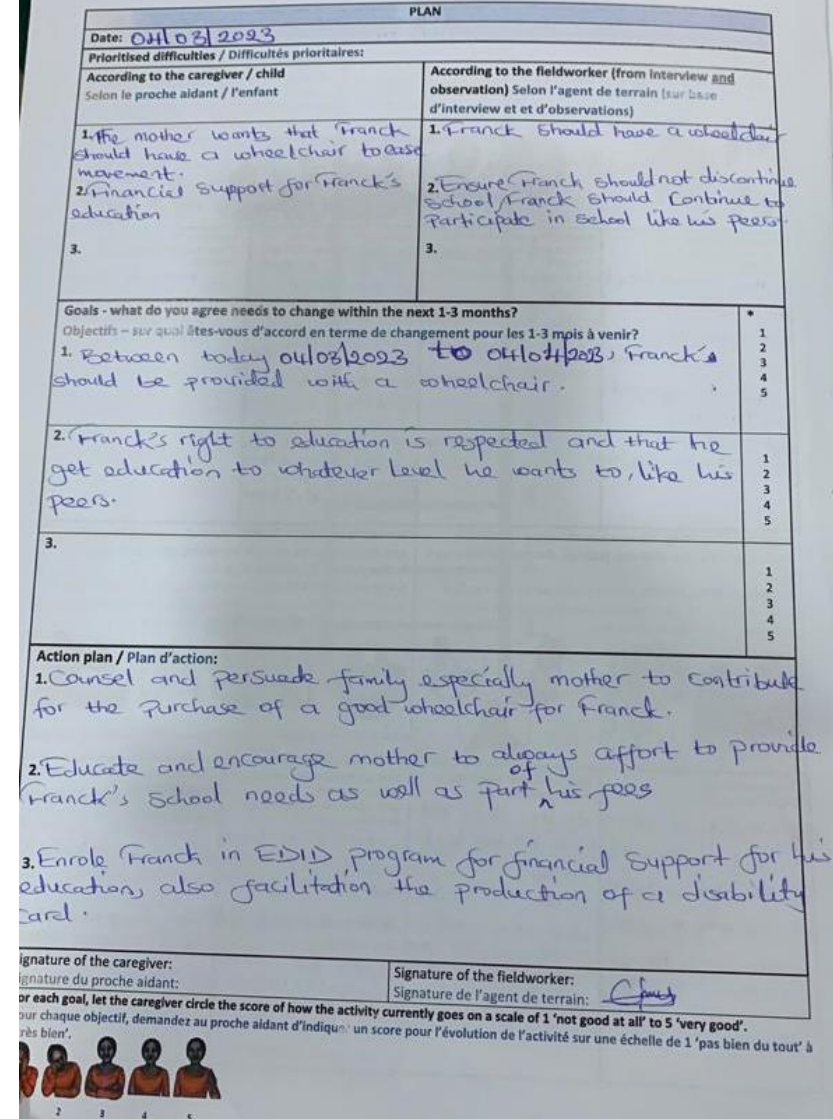 PLAN
Date: 04/03/2023
Prioritised difficulties / Difficultés prioritaires:
According to the caregiver / child
Selon le proche aidant / l'enfant
According to the fieldworker (from interview and
observation) Selon l'agent de terrain (sur base
d'interview et et d'observations)
1. The mother wants that Franck
should have a wheelchair to ease
movement.
2. Financial Support for Franck's
education
3.
1. Franck should have a wheelchair
2. Ensure Franck should not discontinue
school, Franck should continue to
Participate in school like his peers.
3.
Goals - what do you agree needs to change within the next 1-3 months?
Objectifs – sur quoi êtes-vous d'accord en terme de changement pour les 1-3 mois à venir?
1. Between today 04/03/2023 to 04/04/2023, Franck's
should be provided with a wheelchair.
*
1
2
3
4
5
2. Franck's right to education is respected and that he
get education to whatever level he wants to, like his
peers.
1
2
3
4
5
3.
1
2
3
4
5
Action plan / Plan d'action:
1. Counsel and persuade family especially mother to contribute
for the Purchase of a good wheelchair for Franck.
2. Educate and encourage mother to always affort to provide
Franck's school needs as well as part of his fees
3. Enrole Franck in EDID program for financial Support for his
education, also facilitation the production of a disability
card.
ignature of the caregiver:
ignature du proche aidant:
Signature of the fieldworker:
Signature de l'agent de terrain:
or each goal, let the caregiver circle the score of how the activity currently goes on a scale of 1 'not good at all' to 5 'very good'.
our chaque objectif, demandez au proche aidant d'indiquer un score pour l'évolution de l'activité sur une échelle de 1 'pas bien du tout' à
rès bien'.
2 3 4 5